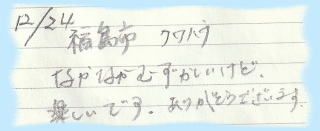 12/24
福島市 クワハラ
なかなかむずかしいけど、
楽しいです。ありがとうございます。